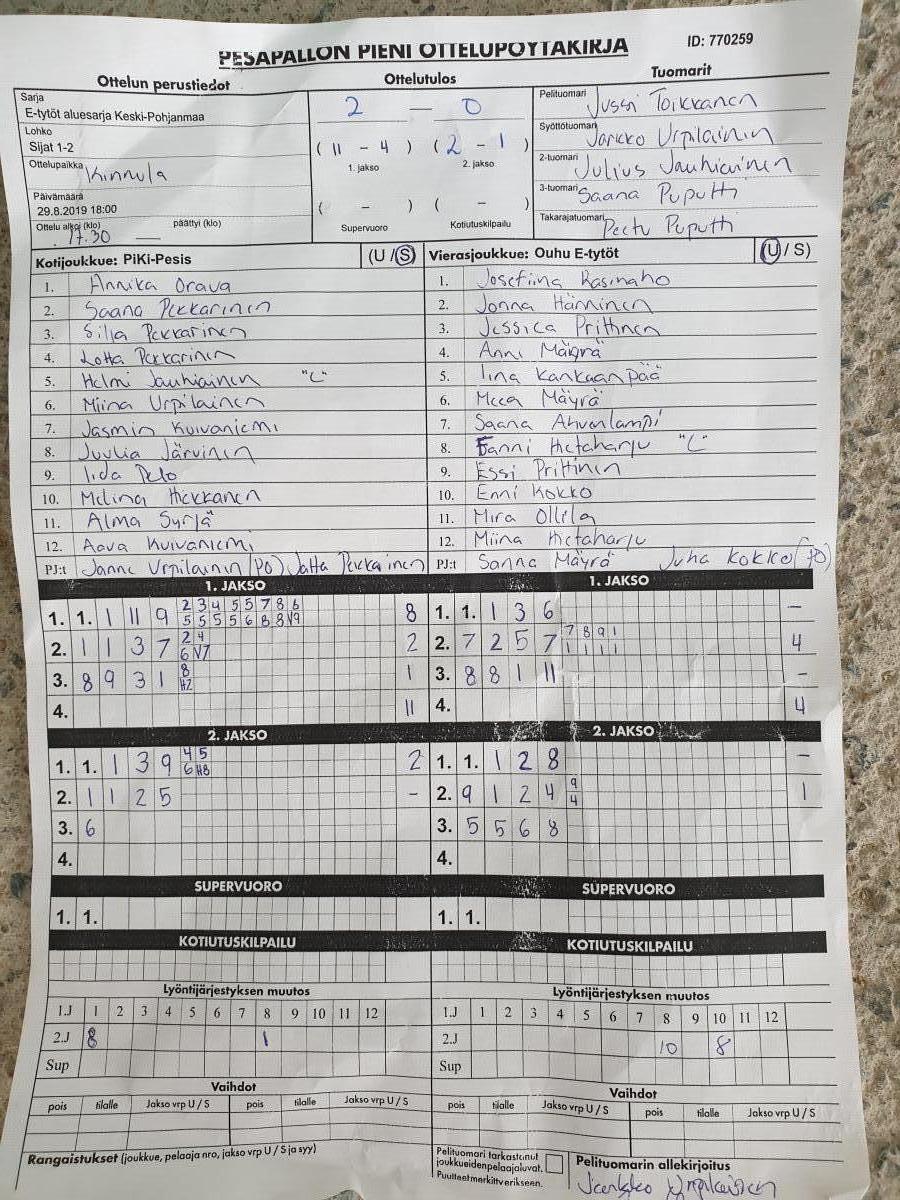 PESÄPALLON PIENI OTTELUPÖYTÄKIRJA
ID: 770259
Ottelun perustiedot
Ottelutulos
Tuomarit
Sarja
E-tytöt aluesarja Keski-Pohjanmaa
Lohko
Sijat 1-2
Ottelupaikka Kinnula
Päivämäärä
29.8.2019 18:00
Ottelu alkoi (klo) päättyi (klo)
17.30 —
2 — 0
( 11 - 4 ) ( 2 - 1 )
1. jakso 2. jakso
( - ) ( - )
Supervuoro Kotiutuskilpailu
Pelituomari Jussi Toikkanen
Syöttötuomari Jarkko Urpilainen
2-tuomari Julius Jauhiainen
3-tuomari Saana Puputti
Takarajatuomari Peetu Puputti
Kotijoukkue: PiKi-Pesis (U / S)
1. Annika Orava
2. Saana Pekkarinen
3. Silja Pekkarinen
4. Lotta Pekkarinen
5. Helmi Jauhiainen "C"
6. Miina Urpilainen
7. Jasmin Kuivaniemi
8. Juulia Järvinen
9. Iida Pelo
10. Melina Hiekkanen
11. Alma Syrjä
12. Aava Kuivaniemi
PJ:t Janne Urpilainen (PO) Jatta Pekkarinen
Vierasjoukkue: Ouhu E-tytöt (U / S)
1. Josefiina Kasinaho
2. Jonna Hänninen
3. Jessica Prittinen
4. Anni Mäyrä
5. Iina Kankaanpää
6. Meea Mäyrä
7. Saana Ahvenlampi
8. Fanni Hietaharju "C"
9. Essi Prittinen
10. Enni Kokko
11. Mira Ollila
12. Miina Hietaharju
PJ:t Sanna Mäyrä Juha Kokko (PO)
1. JAKSO
1. 1. 1 11 9 2 3 4 5 5 7 8 6 8
5 5 5 5 6 8 8 V9
2. 1 1 3 7 2 4 2
6 V7
3. 8 9 3 1 8 1
H2
4. 11
1. JAKSO
1. 1. 1 3 6 –
2. 7 2 5 7 7 8 9 1 4
1 1 1 1
3. 8 8 1 11 –
4. 4
2. JAKSO
1. 1. 1 3 9 4 5 2
6 H8
2. 1 1 2 5 –
3. 6
4.
2. JAKSO
1. 1. 1 2 8 –
2. 9 1 2 4 9 1
4
3. 5 5 6 8
4.
SUPERVUORO
1. 1.
SUPERVUORO
1. 1.
KOTIUTUSKILPAILU
KOTIUTUSKILPAILU
Lyöntijärjestyksen muutos
1.J 1 2 3 4 5 6 7 8 9 10 11 12
2.J 8 1
Sup
Lyöntijärjestyksen muutos
1.J 1 2 3 4 5 6 7 8 9 10 11 12
2.J 10 8
Sup
Vaihdot
pois tilalle Jakso vrp U / S pois tilalle Jakso vrp U / S
Vaihdot
pois tilalle Jakso vrp U / S pois tilalle Jakso vrp U / S
Rangaistukset (joukkue, pelaaja nro, jakso vrp U / S ja syy)
Pelituomari tarkastanut
joukkueidenpelaajaluvat.
Puutteetmerkittverikseen.
Pelituomarin allekirjoitus
Jarkko Urpilainen